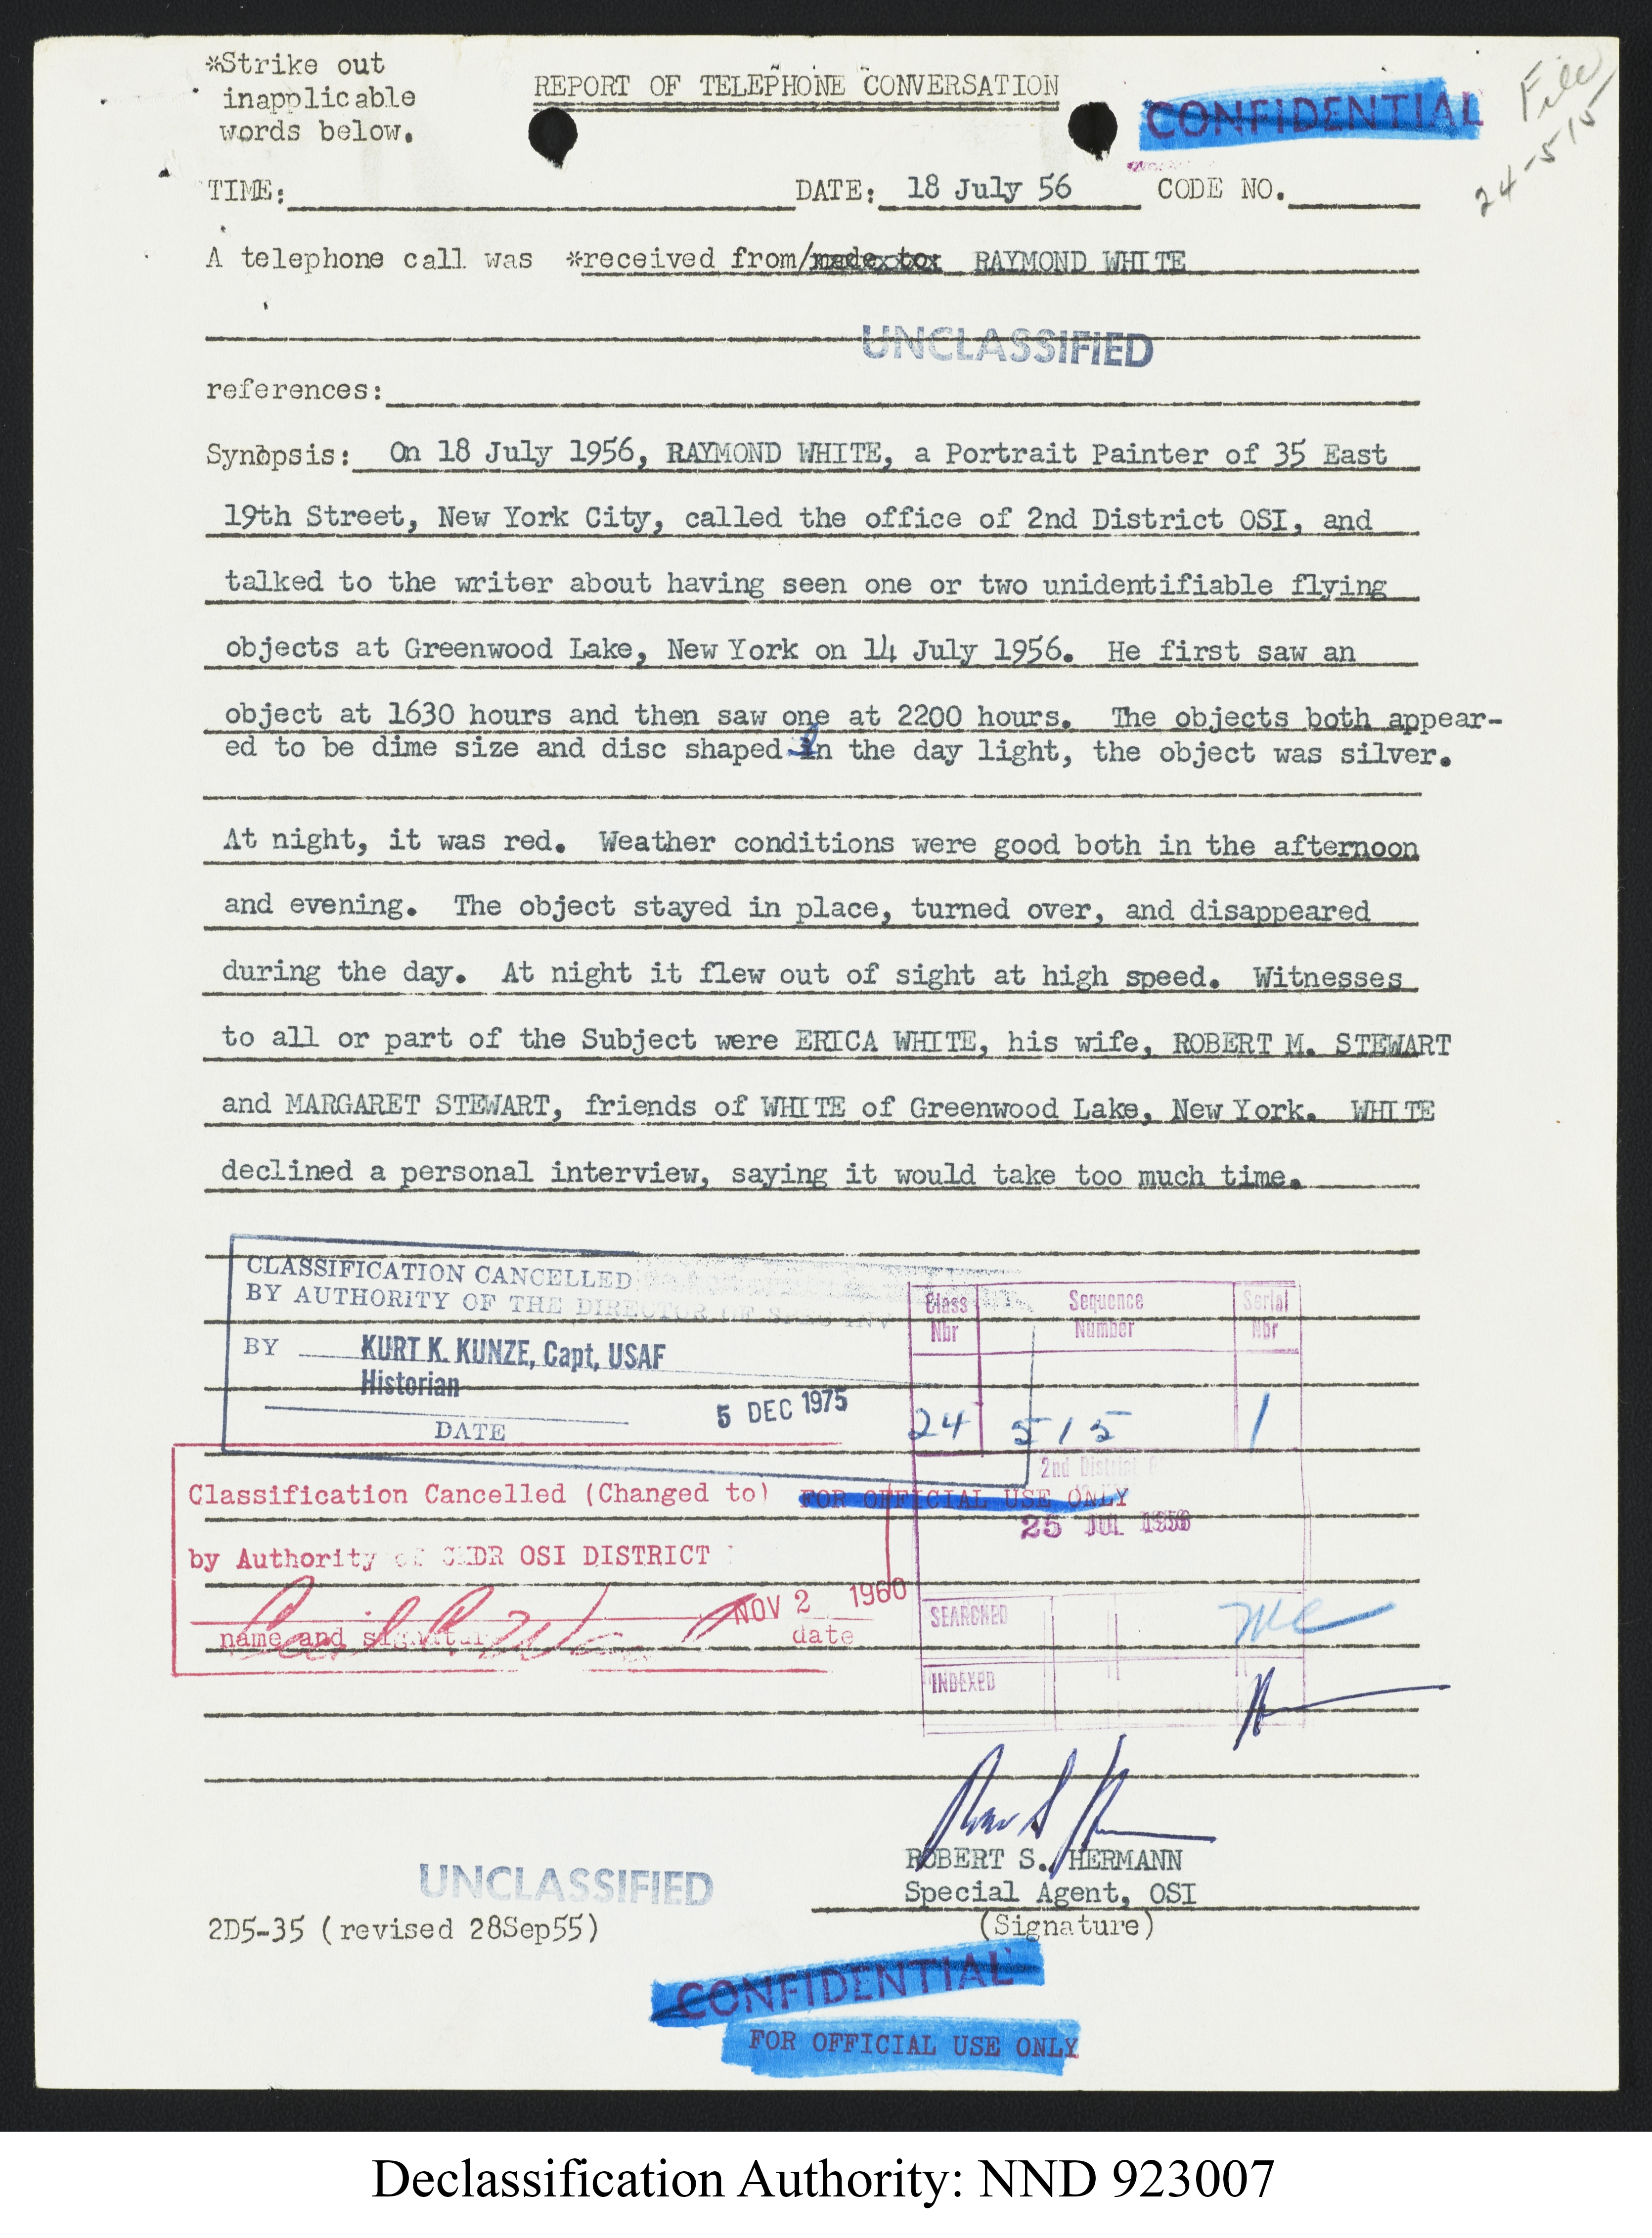 *Strike out
inapplicable
words below.
REPORT OF TELEPHONE CONVERSATION
CONFIDENTIAL
File
24-515
TIME: DATE: 18 July 56 CODE NO.
A telephone call was *received from/made to: RAYMOND WHITE
UNCLASSIFIED
references:
Synopsis: On 18 July 1956, RAYMOND WHITE, a Portrait Painter of 35 East
19th Street, New York City, called the office of 2nd District OSI, and
talked to the writer about having seen one or two unidentifiable flying
objects at Greenwood Lake, New York on 14 July 1956. He first saw an
object at 1630 hours and then saw one at 2200 hours. The objects both appear-
ed to be dime size and disc shaped In the day light, the object was silver.
At night, it was red. Weather conditions were good both in the afternoon
and evening. The object stayed in place, turned over, and disappeared
during the day. At night it flew out of sight at high speed. Witnesses
to all or part of the Subject were ERICA WHITE, his wife, ROBERT M. STEWART
and MARGARET STEWART, friends of WHITE of Greenwood Lake, New York. WHITE
declined a personal interview, saying it would take too much time.
CLASSIFICATION CANCELLED
BY AUTHORITY OF THE DIRECTOR OF INV
BY KURT K. KUNZE, Capt, USAF
Historian
5 DEC 1975
DATE
Class Nbr Sequence Number Serial Nbr
24 515 1
2nd District
25 JUL 1956
Classification Cancelled (Changed to) FOR OFFICIAL USE ONLY
by Authority of CMDR OSI DISTRICT
NOV 2 1960
name and signature date
SEARCHED
INDEXED
ROBERT S. HERMANN
Special Agent, OSI
(Signature)
UNCLASSIFIED
2D5-35 (revised 28Sep55)
CONFIDENTIAL
FOR OFFICIAL USE ONLY
Declassification Authority: NND 923007